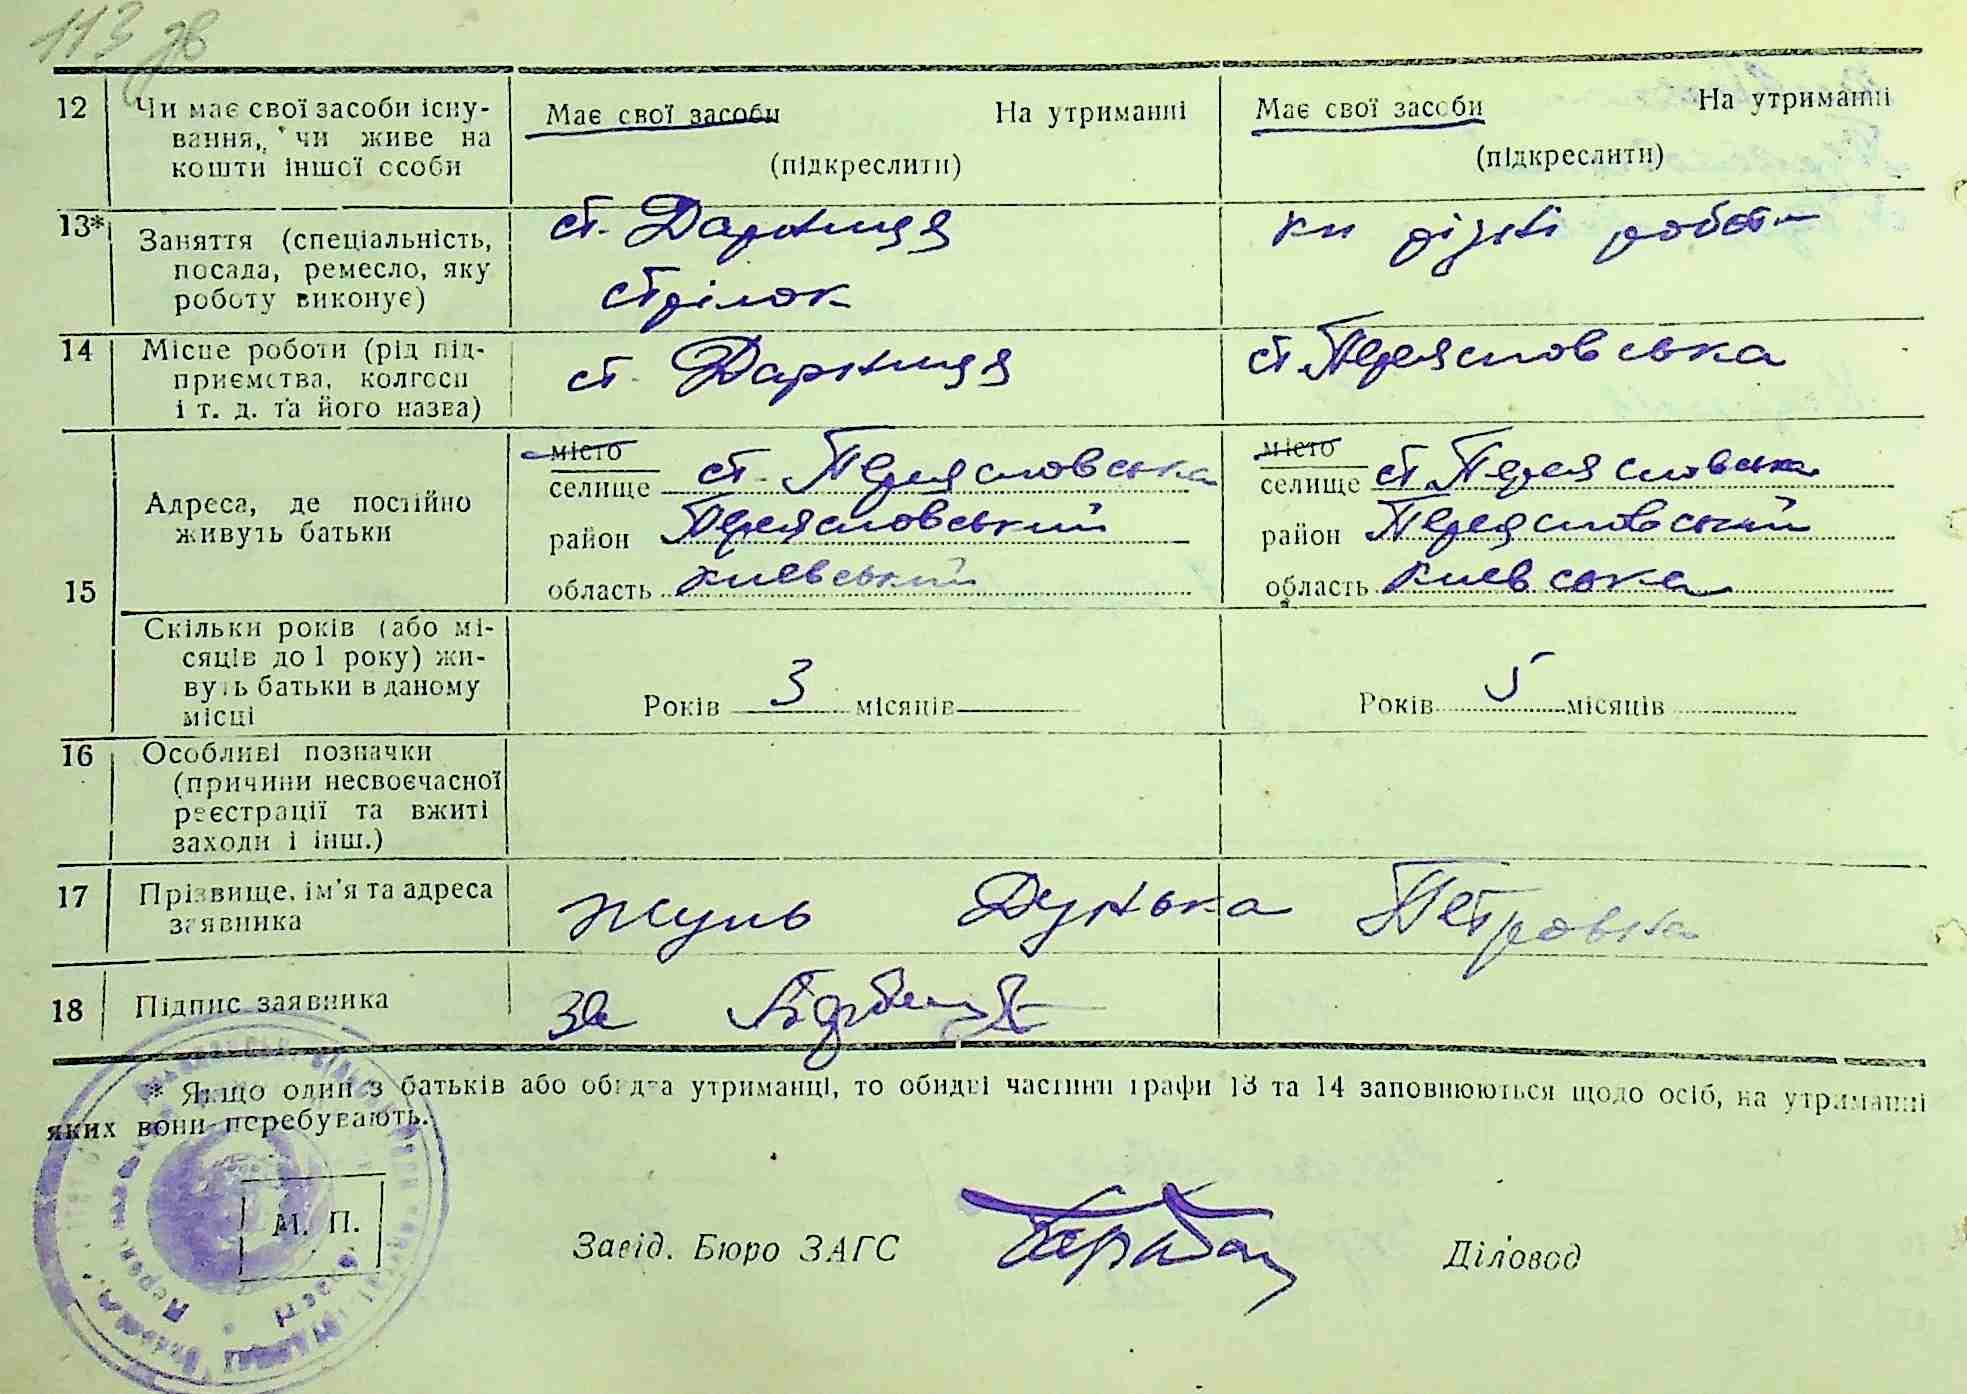 113 зв
12 Чи має свої засоби існу-
вання, чи живе на
кошти іншої особи
Має свої засоби На утриманні
(підкреслити)
Має свої засоби На утриманні
(підкреслити)
13* Заняття (спеціальність,
посада, ремесло, яку
роботу виконує)
ст. Дарниця
стрілок
різні роботи
14 Місце роботи (рід під-
приємства, колгосп
і т. д. та його назва)
ст. Дарниця
ст. Переяславська
15 Адреса, де постійно
живуть батьки
місто
селище ст. Переяславська
район Переяславський
область Киевський
місто
селище ст. Переяславська
район Переяславський
область Киевська
Скільки років (або мі-
сяців до 1 року) жи-
вуть батьки в даному
місці
Років 3 місяців
Років 5 місяців
16 Особливі позначки
(причини несвоєчасної
реєстрації та вжиті
заходи і інш.)
17 Прізвище, ім'я та адреса
заявника
Жуль Дунька Петровна
18 Підпис заявника
За
* Якщо один з батьків або обидва утриманці, то обидві частини графи 13 та 14 заповнюються щодо осіб, на утриманні
яких вони перебувають.
М. П.
Завід. Бюро ЗАГС
Діловод